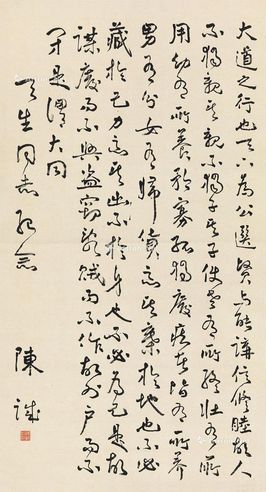 大道之行也天下為公選賢与能講信修睦故人
不獨親其親不獨子其子使老有所終壯有所
用幼有所養矜寡孤獨廢疾者皆有所养
男有份女有歸貨惡其棄於地也不必
藏於己力惡其出不於身也不必為己是故
謀廢而不興盜窃亂賊而不作故外户而不
閉是謂大同
天生同志紀念
陳誠